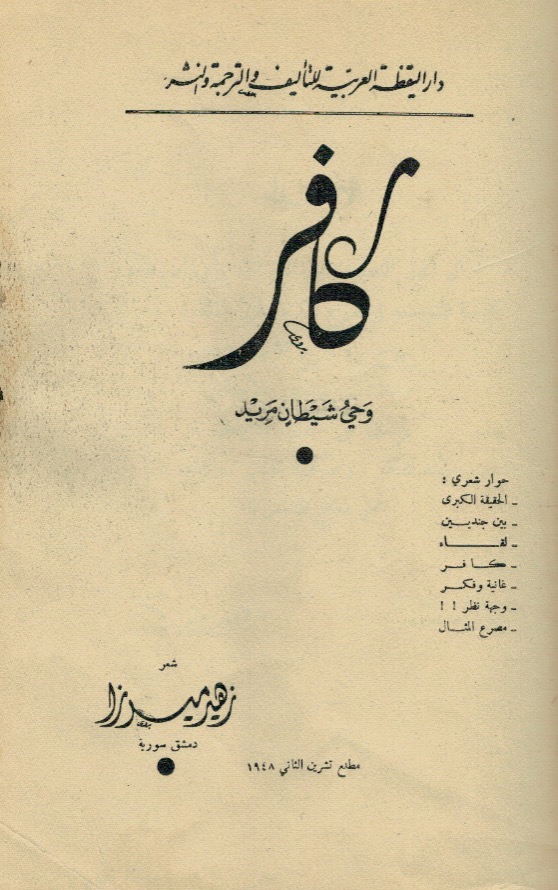 دار اليقظة العربيّة للتأليف والترجمة والنشر
كافر
بدوي
وَحْيُ شَيْطَانٍ مَرِيْد
حوار شعري :
ـ الحقيقة الكبرى
ـ بين جنديـين
ـ لقـــــاء
ـ كـافـر
ـ غانية وفكـر
ـ وجهة نظر ! !
ـ مصرع المثـال
شعر
زهير ميرزا
دمشق سورية
مطلع تشرين الثاني ١٩٤٨